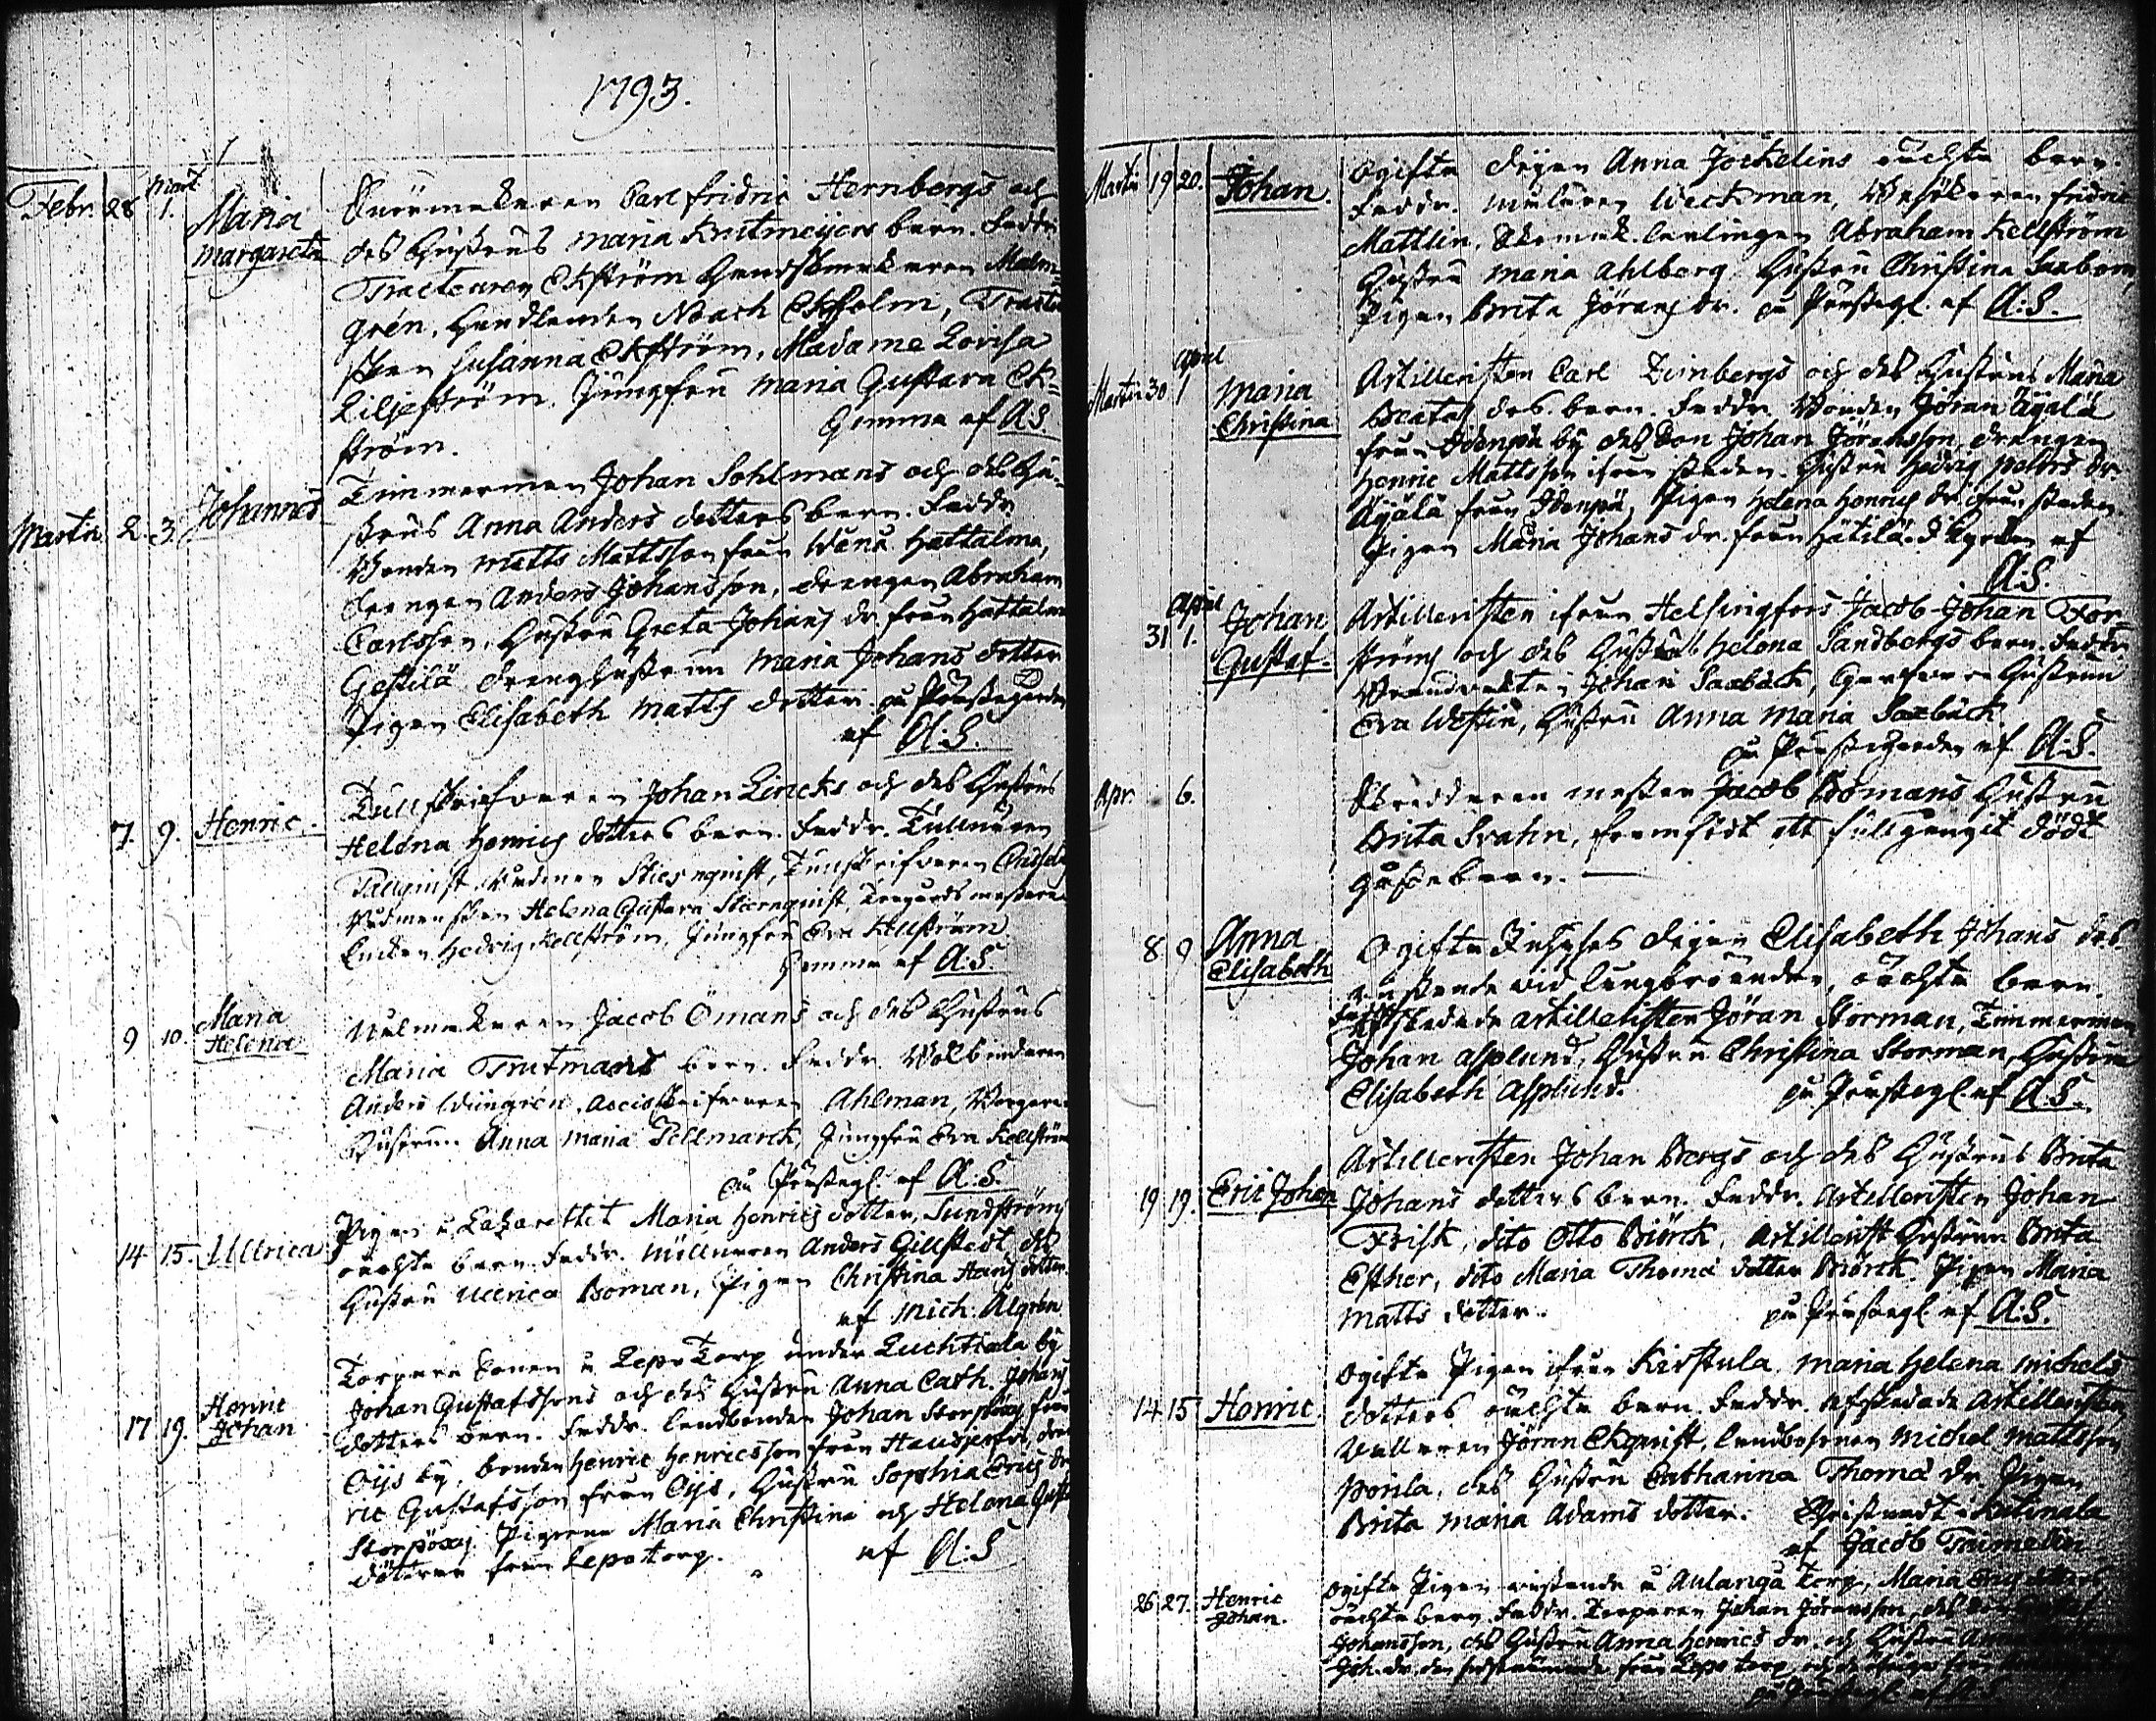 1793.
Febr. 28 Mart. 1. Maria Margareta
Snörmakaren Carl Fridric Hernbergs och
des Hustrus Maria Krutmeijers barn. Faddr.
Tracteuren Ekström Handskmakaren Malm-
grén, Handlanden Noach Ekholm, Tracteu
skan Susanna Ekström, Madame Lovisa
Liljeström, Jungfru Maria Gustava Ek-
ström. Hemma af A:S
Martii 2. 3. Johannes
Timmerman Johan Sohlmans och des Hu-
strus Anna Anders dotters barn. Faddr.
Bonden Matts Mattsson från Wana Hattalma,
drengen Anders Johansson, drengen Abraham
Carlsson, Hustru Greta Johans dr från Hattalma
Gestilä drenghustrun Maria Johans dotter
Pigan Elisabeth Matts dotter på Prästegården
af A:S.
7. 9. Henric.
Tullskrifvaren Johan Lincks och des Hustrus
Helena Henrics dotters barn. Faddr. Tullnären
Tallquist, Stiernquist, Tullskrifvaren
Helena Gustava Stiernquist,
Enkan Hedvig Kellström, Jungfru Eva Kellström.
Hemma af A:S.
9 10. Maria Helena
Jacob Ömans och des Hustrus
Maria Trutmans barn. Faddr. Bokbindaren
Anders Wiingrén, Accisskrifvaren Ahlman, Borgare
Hustrun Anna Maria Tellmarck, Jungfru Eva Kellström
på Prästegl. af A:S.
14 15. Ullrica
Pigan i Lazarettet Maria Henrics dotter, Sundströms
oächta barn. Faddr. Möllnaren Anders Gillstedt, des
Hustru Ulrica Boman, Pigan Christina Hans dotter.
af Mich. Algrén
17 19. Henric Johan
Torpare sonen i Lepo Torp under Luchtiala by
Johan Gustafssons och des Hustru Anna Cath. Johans
dotters barn. Faddr. landbonden Johan Storpöx från
Oijs by, bonden Henric Henricsson från
ric Gustafsson från Oijs, Hustru Sophia Erics dr
Storpöx Pigorna Maria Christina och Helena Gustafs
döttrar från Lepo torp. af A:S
Martii 19 20. Johan.
Ogifta Pigan Anna Jockelins oächta barn.
Faddr. målaren Weckman, Besökaren Fridric
Mattlin, lärlingen Abraham Kellström
Hustru Maria Ahlberg Hustru Christina Saxberg,
Pigan Brita Jörans dr. på Prästegl. af A:S.
Martii 30 April 1 Maria Christina
Artilleristen Carl Zimbergs och des Hustrus Maria
Beata des barn. Faddr. Bonden Jöran Äijälä
från Idenpä by des Son Johan Jöransson, drengen
Henric Mattsson ifrån staden. Hustru Hedvig Peldrs dr.
Äijälä från Idenpä, Pigan Helena Henrics dr ifrån staden.
Pigan Maria Johans dr. från Hätilä. i Kyrkan af
A:S.
31 April 1. Johan Gustaf.
Artilleristen ifrån Helsingfors Jacob Johan For-
ströms och des Hustrus Helena Sandbergs barn. Faddr.
Brandvakten Johan Saxbäck, Garfvare Hustrun
Eva Westin, Hustru Anna Maria Saxbäck.
på Prästegården af A:S.
Apr. 6.
Skräddaren mästar Jacob Bomans Hustru
Brita Svahn, framfödt ett fullgångit dödt
gossebarn.
8 9 Anna Elisabeth
Ogifta Inhyses Pigan Elisabeth Johans des
vistande vid oächta barn.
Faddr. Afskedade Artilleristen Jöran Storman, Timmerman
Johan Asplund, Hustru Christina Storman, Hustrun
Elisabeth Asplund. på Prästegl. af A:S.
19 19. Eric Johan
Artilleristen Johan Bergs och des Hustrus Brita
Johans dotters barn. Faddr. Artilleristen Johan
Frisk, dito Otto Biörck, Artillerist Hustrun Brita
Esther, dito Maria Thoma dotter Biörck. Pigan Maria
Matts dotter. på Prästegl. af A:S.
14 15 Henric.
Ogifta Pigan ifrån Kirstula Maria Helena Michels
dotters oächta barn. Faddr. Afskedade Artilleristen
Jöran Ekqvist, landbosonen Michel Mattsson
Ponila, des Hustru Catharina Thoma dr. Pigan
Brita Maria Adams dotter. Christnadt i Katinala
af Jacob Trimelin
26 27. Henric Johan.
Ogifta Pigan vistande i Aulanga Torp, Maria Erics dotters
oächta barn. Faddr. Torparen Johan Jöransson, des
Johansson, des Hustru Anna Henrics dr. och Hustru
Joh. dr. den sidstnämnde från Lepo torp och de öfriga från